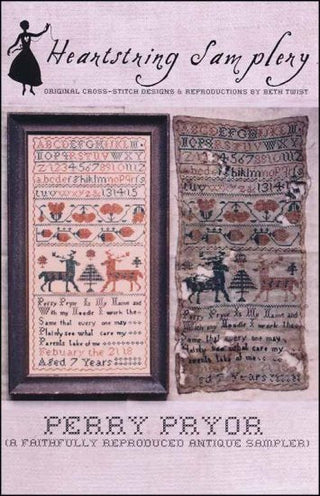 Heartstring Samplery
ORIGINAL CROSS-STITCH DESIGNS & REPRODUCTIONS BY BETH TWIST
ABCDEFGHIJKL
NOPQRSTUVWXY
Z 1234567891011
abcdefg hiklmnopqrs
tuvwxyz 131415
Perry Pryor Is My Name and
With my Needle I work the
Same that every one may
Plainly See what care my
Parents take of me
February the 21 18
Aged 7 Years
ABCDEFGHIJKL
NOPQRSTUVWXY
1234567891011
131415
Perry Pryor Is My Name and
With my Needle I work the
Same that every one may
what care my
Parents take of me
ed 7 Years
PERRY PRYOR
(A FAITHFULLY REPRODUCED ANTIQUE SAMPLER)